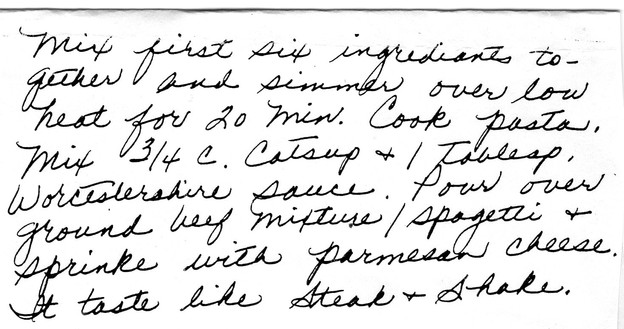 Mix first six ingrediants to-
gether and simmer over low
heat for 20 Min. Cook pasta.
Mix 3/4 c. Catsup + 1 Tablesp.
Worcestershire sauce. Pour over
ground beef mixture / spagetti +
sprinke with parmesan cheese.
It taste like Steak + Shake.